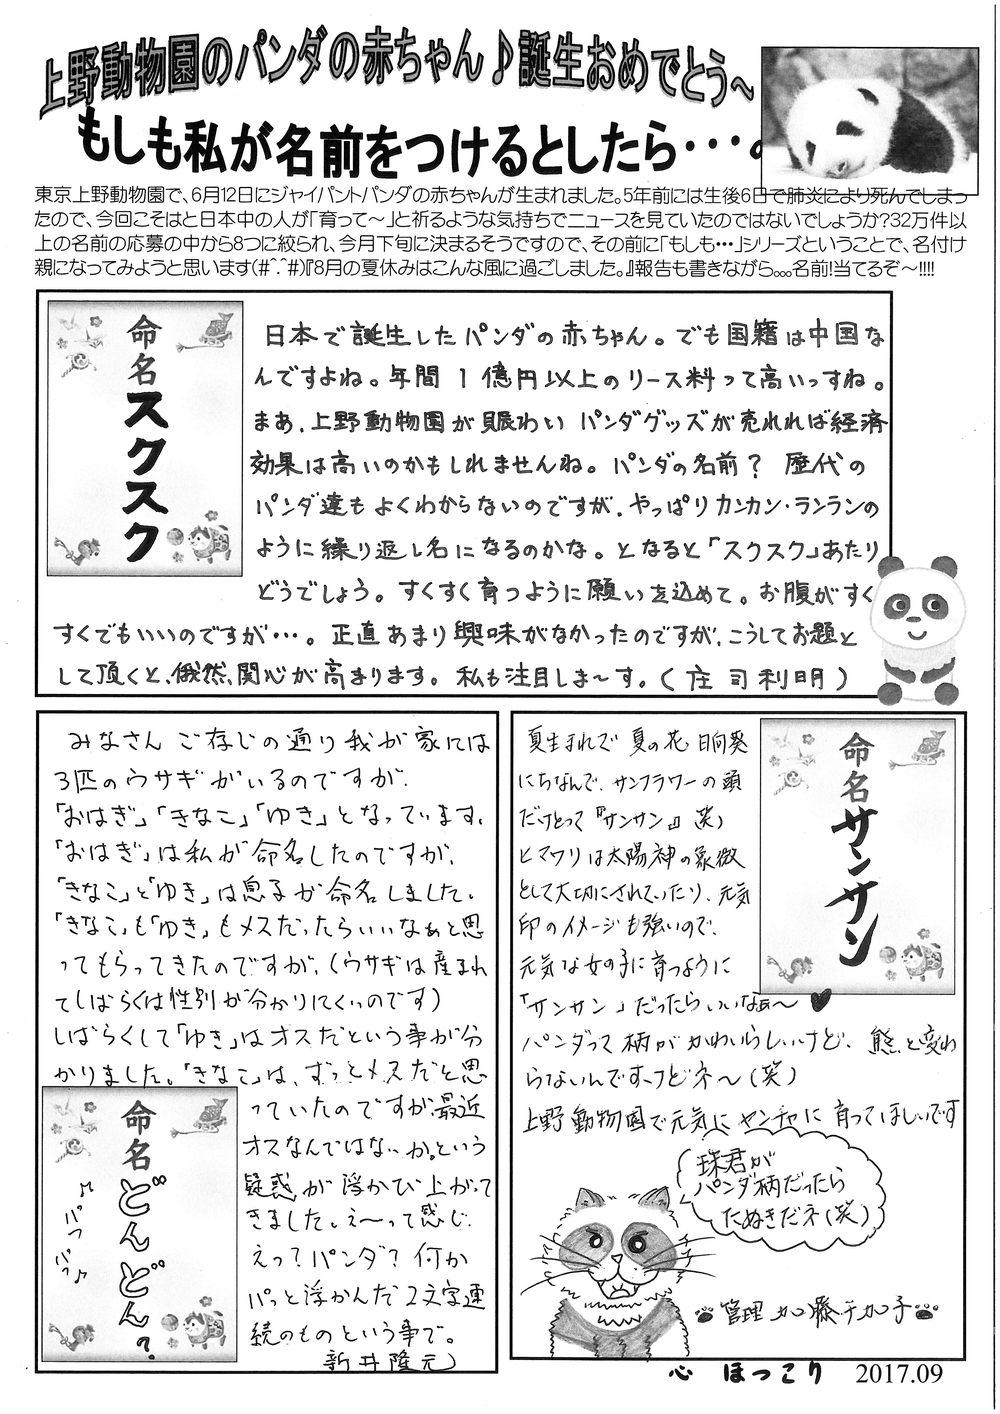 上野動物園のパンダの赤ちゃん♪誕生おめでとう～
もしも私が名前をつけるとしたら・・・。
東京上野動物園で、6月12日にジャイパントパンダの赤ちゃんが生まれました。5年前には生後6日で肺炎により死んでしまっ
たので、今回こそはと日本中の人が「育って～」と祈るような気持ちでニュースを見ていたのではないでしょうか?32万件以
上の名前の応募の中から8つに絞られ、今月下旬に決まるそうですので、その前に「もしも…」シリーズということで、名付け
親になってみようと思います(#^.^#)『8月の夏休みはこんな風に過ごしました。』報告も書きながら。。。名前!当てるぞ～!!!!
命名スクスク
日本で誕生したパンダの赤ちゃん。でも国籍は中国な
んですよね。年間1億円以上のリース料って高いっすね。
まあ、上野動物園が賑わいパンダグッズが売れれば経済
効果は高いのかもしれませんね。パンダの名前? 歴代の
パンダ達もよくわからないのですが、やっぱりカンカン・ランランの
ように繰り返し名になるのかな。となると「スクスク」あたり
どうでしょう。すくすく育つように願いを込めて。お腹がすく
すくでもいいのですが…。正直あまり興味がなかったのですが、こうしてお題と
して頂くと、俄然、関心が高まります。私も注目しま～す。(庄司利明)
みなさんご存じの通り我が家には
3匹のウサギがいるのですが、
「おはぎ」「きなこ」「ゆき」となっています。
「おはぎ」は私が命名したのですが、
「きなこ」と「ゆき」は息子が命名しました。
「きなこ」も「ゆき」もメスだったらいいなぁと思
ってもらってきたのですが、(ウサギは産まれ
てしばらくは性別が分かりにくいのです)
しばらくして「ゆき」はオスだという事が分
かりました。「きなこ」は、ずっとメスだと思
っていたのですが最近
オスなんではないか。という
疑惑が浮かび上がって
きました。え～って感じ。
えっ?パンダ?何か
パッと浮かんだ2文字連
続のものという事で。
新井隆元
命名どんどん?
♪パフパフ♪
夏生まれで夏の花 日向葵
にちなんで、サンフラワーの頭
だけとって『サンサン』笑)
ヒマワリは太陽神の象徴
として大切にされていたり、元気
印のイメージも強いので、
元気な女の子に育つように
「サンサン」だったらいいなぁ～♥
パンダって柄がかわいらしいけど、熊と変わ
らないんですけどネ～(笑)
上野動物園で元気にヤンチャに育ってほしいです
命名サンサン
珠君が
パンダ柄だったら
たぬきだネ(笑)
管理 加藤チカ子
心 ほっこり 2017.09